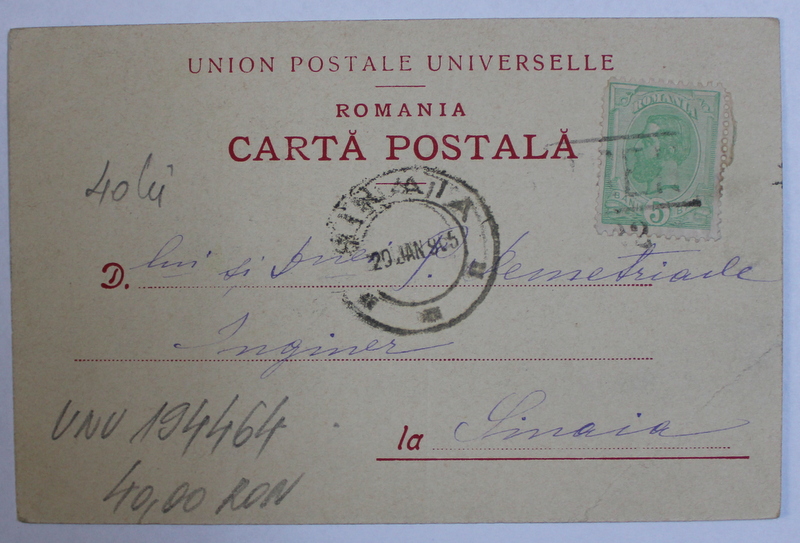 UNION POSTALE UNIVERSELLE
ROMANIA
CARTĂ POSTALĂ
ROMANIA
BANI 5
40 lei
SINAIA
29 JAN 905
D. lui și Dnei Demetriade
Inginer
la Sinaia
UNU 194464
40,00 RON